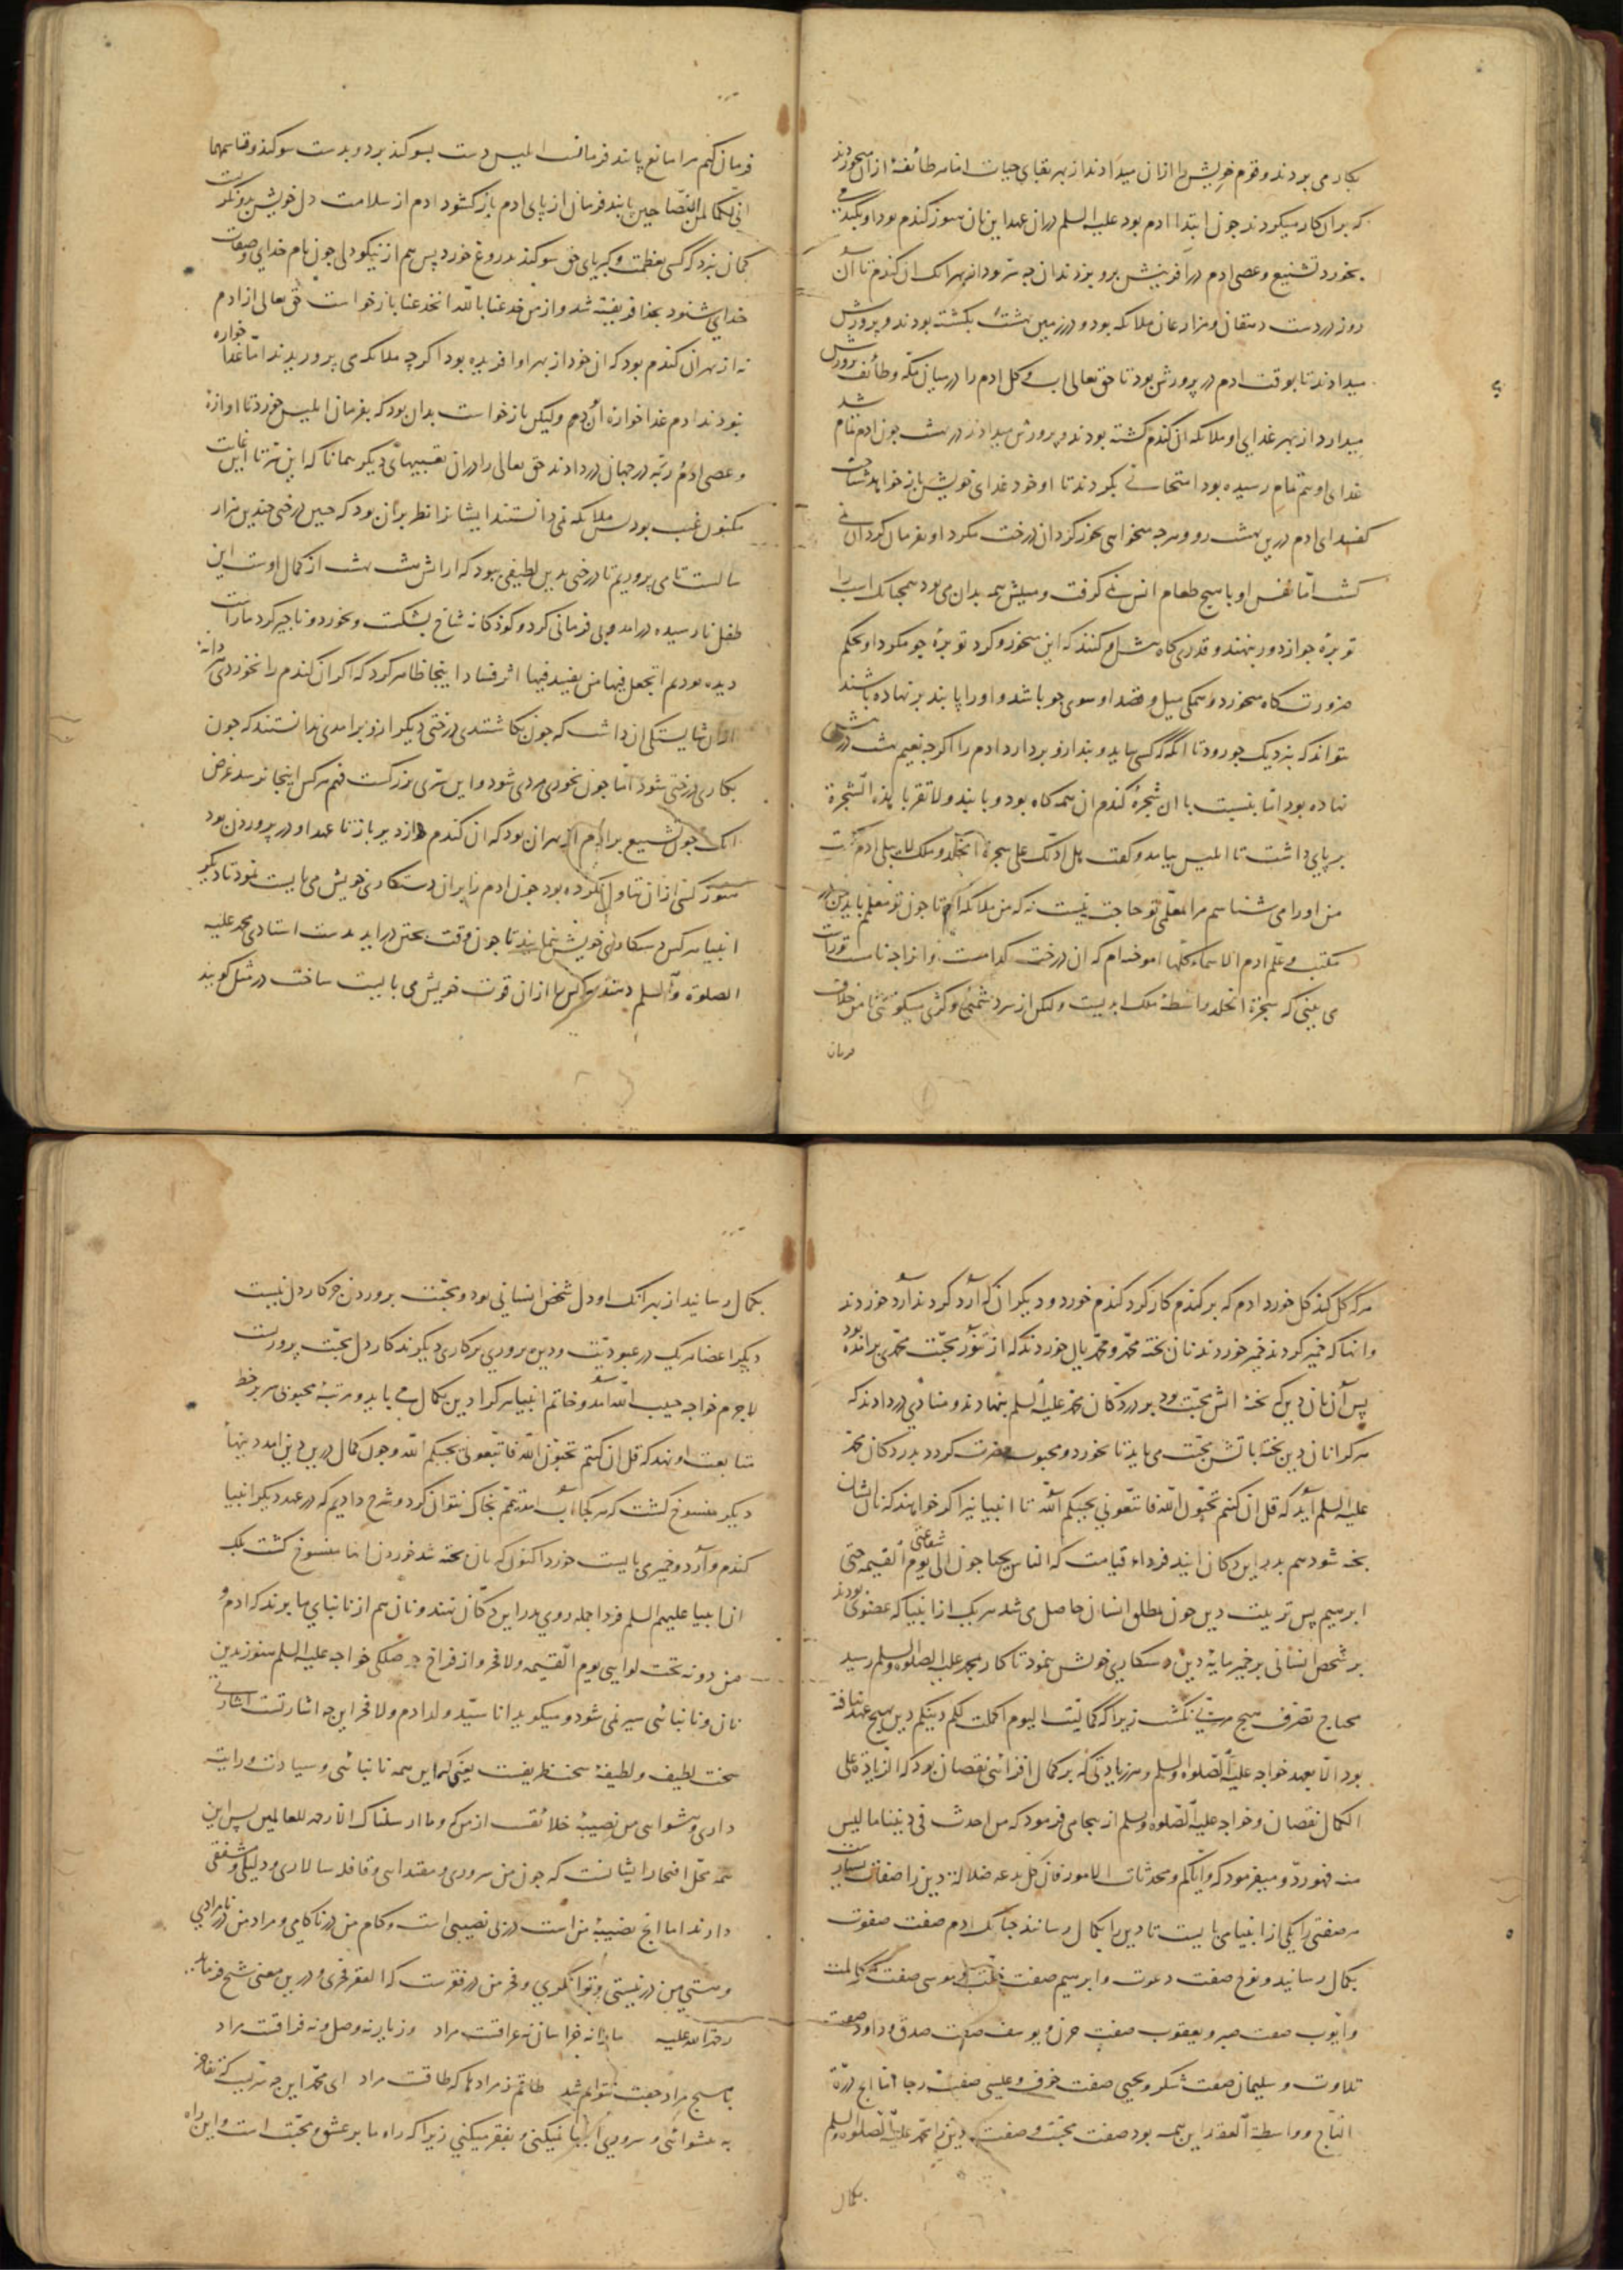 بکار می بردند و قوم خویش را ازان میدادند از بهر بقای حیات اما هر طائفهٔ ازان میخوردند
که بران کار میکردند چون ابتدا ادم بود علیه السلم دران عهد این نان هنوز گندم بود او گندم
بخورد تشنیع و عصی ادم در افرینش برو بزدند ان چه سر بود از بهر انک ان گندم تا آن
روز در دست دهقان و مزارعان ملائکه بود و در زمین بهشت بکشته بودند و پرورش
میدادند تا بوقت ادم در پرورش بود تا حق تعالی اب و گل ادم را در میان مکّه و طائف پرورش
میداد از بهر غذای او ملائکه ان گندم کشته بودند و پرورش میدادند در بهشت چون ادم تمام شد
غذای او هم تمام رسیده بود امتحانی بکردند تا او خود غذای خویش باز خواهد شناخت
گفتند ای ادم درین بهشت رو و هرچه میخواهی بخور گرد ان درخت مگرد او بفرمان گرد ان نمی
گشت امّا نفس او با هیچ طعام انس نمی گرفت و میلش همه بدان می بود همچنانک اسب را
توبرهٔ جو از دور بنهند و قدری کاه پیش او کنند که این میخور و گرد توبرهٔ جو مگرد او بحکم
ضرورت کاه میخورد و همگی میل و قصد او سوی جو باشد و او را پابند بر نهاده باشند
نتواند که نزدیک جو رود تا انگه که کسی بیاید و بند ازو بردارد ادم را اگرچه نعیم بهشت در پیش
نهاده بود امّا بنسبت با ان شجرهٔ گندم ان همه کاه بود و پابند و لا تقربا هذه الشجرة
بر پای داشت تا ابلیس بیامد و گفت هل ادلّک علی شجرة الخلد و ملک لا یبلی ادم گفت
من او را می شناسم مرا بمعلّمی تو حاجت نیست نه که من ملائکه ام تا چون تو معلّم باید من در
مکتب و علّم ادم الاسماء کلّها اموخته ام که ان درخت کدامست و انرا چه نامست تو راست
می بینی که شجرة الخلد واسطهٔ ملک ابدیست ولیکن از سر دشمنی و کژی میگوئی تا من خلاف
فرمان
فرمان کنم مرا مانع پابند فرمانست ابلیس دست بسوگند برد و بدست سوگند و قاسمهما
انّی لکما لمن النّصاحین پابند فرمان از پای ادم باز گشود ادم از سلامت دل خویش بدو نگریست
گمان نبرد که کسی بعظمت و کبریای حق سوگند بدروغ خورد پس هم از نیکو دلی چون نام خدای و صفات
خدای شنود بخدا فریفته شد و از من خدعنا بالله انخدعنا بازخواست حق تعالی از ادم
نه از بهر ان گندم بود که ان خود از بهر او افریده بود اگرچه ملائکه می پروریدند امّا غذا خواره
نبودند ادم غذا خوارهٔ ان هم ولیکن بازخواست بدان بود که بفرمان ابلیس خورد تا اوازهٔ
و عصی ادم ربّه در جهان در دادند حق تعالی را دران تعبیهای دیگر همانا که این سر تا این غایت
مکنون غیب بود پس ملائکه نمی دانستند ایشانرا نظر بران بود که چنین درختی چندین هزار
سالست تا می پروریم تا درختی بدین لطیفی ببود که ارایش هشت بهشت از کمال اوست این
طفل نارسیده در امد و بی فرمانی کرد و کودکانه شاخ بشکست و بخورد و ناچیز کرد ما راست
دیده بودیم اتجعل فیها من یفسد فیها اثر فساد اینجا ظاهر کرد که اگر ان گندم را نخوردی هر دانه
ازان شایستگی ان داشت که چون بکاشتندی درختی دیگر ازو برامدی ندانستند که چون
بکاری درختی شود امّا چون بخوری مردی شود و این سرّی بزرگست فهم هرکس اینجا نرسد غرض
انک چون تشنیع بر ادم از بهر ان بود که ان گندم از دیر باز تا عهد او در پروردن بود
هنوز کسی ازان تناول نکرده بود چون ادم را بران دستکاری خویش می بایست نمود تا دیگر
انبیا هرکس دستکاری خویش بنمایند تا چون وقت پختن دراید بدست استادی محمد علیه
الصلوة والسلم دهند هرکس را ازان قوت خویش می بایست ساخت در مثل گویند
هر که گل کند گل خورد ادم که بر گندم کار کرد گندم خورد و دیگران که آرد کردند آرد خوردند
وانها که خمیر کردند خمیر خوردند نان پخته محمد و محمّدیان خوردند که از تنور محبّت محمّدی برامده بود
پس آن نان دین که پختهٔ اتش محبّت بود بر در دکّان محمّد علیه السلم بنهادند و منادی در دادند که
هر کرا نان دین پخته باتش محبّت می باید تا بخورد و محبوب حضرت گردد بدر دکان محمّد
علیه السلم آید که قل ان کنتم تحبّون الله فاتّبعونی یحببکم الله تا انبیا نیز اگر خواهند که نان ایشان
پخته شود هم بدر این دکان ایند فرداء قیامت که الناس یحتاجون الی شفاعتی یوم القیمه حتی
ابرهیم پس تربیت دین چون مطلق انسان حاصل می شد هر یک از انبیا که عضوی بودند
بر شخص انسانی بر خمیر مایهٔ دین دستکاری خویش بنمود تا کار بمحمد علیه الصلوه والسلم رسید
محتاج تصرّف هیچ مربّی نگشت زیرا که کمالیّت الیوم اکملت لکم دینکم دین بهیچ عهد نیافته
بود الّا بعهد خواجه علیه الصّلوه والسلم و هر زیادتی که بر کمال افزائی نقصان بود که الزیادة علی
الکمال نقصان و خواجه علیه الصّلوه والسلم از ینجا می فرمود که من احدث فی دیننا ما لیس
منه فهو ردّ و میفرمود که وایّاکم و محدثات الامور فان کلّ بدعه ضلالة دین را صفات بسیارست
هر صفتی را یکی از انبیا می بایست تا دین را بکمال رسانند چنانک ادم صفت صفوت
بکمال رسانید و نوح صفت دعوت و ابرهیم صفت خلّت و موسی صفت مکالمت
و ایّوب صفت صبر و یعقوب صفت حزن و یوسف صفت صدق و داود صفت
تلاوت و سلیمان صفت شکر و یحیی صفت خوف و عیسی صفت رجا امّا انچ درّة
التّاج و واسطة العقد این همه بود صفت محبّت و صفت دین را محمّد علیه الصّلوه والسلم
بکمال
بکمال رسانید از بهر انک او دل شخص انسانی بود و محبّت پروردن جز کار دل نیست
دیگر اعضا هریک در عبودیّت و دین پروری بر کاری دیگرند کار دل محبّت پرورست
لاجرم خواجه حبیب الله آمد و خاتم انبیا هر کرا دین بکمال می باید و مرتبهٔ محبوبی سر بر خط
متابعت او نهد که قل ان کنتم تحبّون الله فاتّبعونی یحببکم الله و چون کمال دین درین امد دینهاء
دیگر منسوخ گشت که هر کجا آب امد تیمّم بخاک نتوان کرد و شرح دادیم که در عهد دیگر انبیا
گندم و آرد و خمیر می بایست خورد اکنون که نان پخته شد خوردن انها منسوخ گشت بلک
انبیا علیهم السلم فردا جمله روی بدر این دکّان نهند و نان هم از نانبای ما برند که ادم و
من دونه تحت لوایی یوم القیمه و لا فخر و از فراخ حوصلگی خواجه علیه السلم هنوز بدین
نان و نانبائی سیر نمی شود و میگوید انا سیّد ولد ادم و لا فخر این چه اشارتست اشارتی
سخت لطیف و لطیفهٔ سخت ظریفست یعنی که این همه نانبائی و سیادت و رایت
داری و پیشوایی من نصیبهٔ خلائق از من که و ما ارسلناک الا رحمه للعالمین پس این
همه محلّ افتخار ایشانست که چون من سروری و مقتدایی و قافله سالاری و دلیلی و مشفقی
دارند اما انچ نصیبهٔ من است در بی نصیبی است و کام من در ناکامی و مراد من در نامرادی
و هستی من در نیستی و توانگری و فخر من در فقرست که الفقر فخری و درین معنی شیخ فرماید
رحمة الله علیه ما را نه خراسان نه عراقست مراد وز یار نه وصل و نه فراقست مراد
با هیچ مراد جفت نتوانم شد طاقم ز مرادها که طاقت مراد ای محمّد این چه سرّیست که تفاخر
به پیشوائی و سروری انبیا نمیکنی و بفقر میکنی زیرا که راه ما بر عشق و محبّت است و این راه